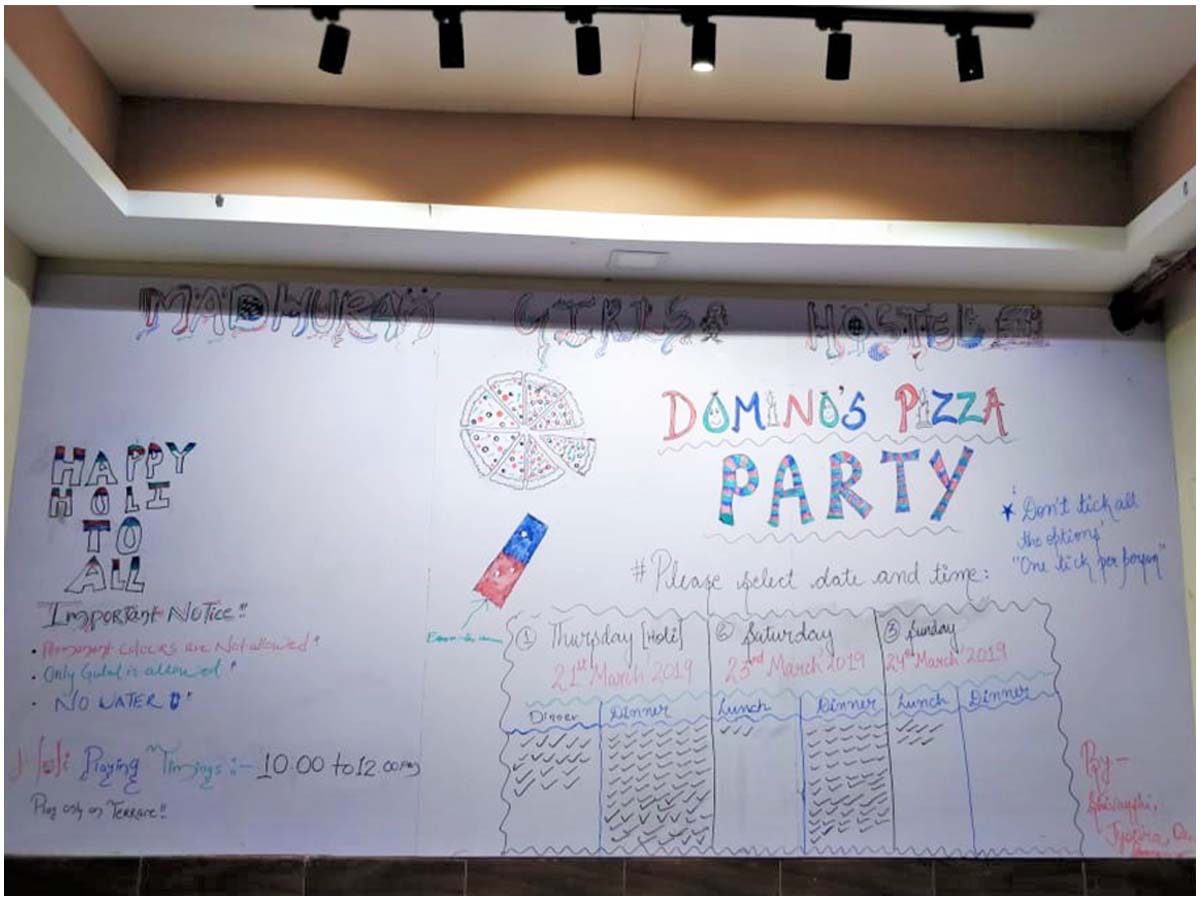 MADHURAM GIRLS HOSTEL
DOMINO'S PIZZA
PARTY
* Don't tick all
the options'
"One tick per person"
# Please select date and time:
① Thursday [Holi]
21st March'2019
Dinner
Dinner
② Saturday
23nd March'2019
Lunch
Dinner
③ Sunday
24th March'2019
Lunch
Dinner
By -
HAPPY
HOLI
TO
ALL
Important Notice!!
• Permanent colours are Not allowed!
• Only Gulal is allowed!
• NO WATER !
Holi Playing Timings :- 10.00 to 12.00 PM
Play only on Terrace!!